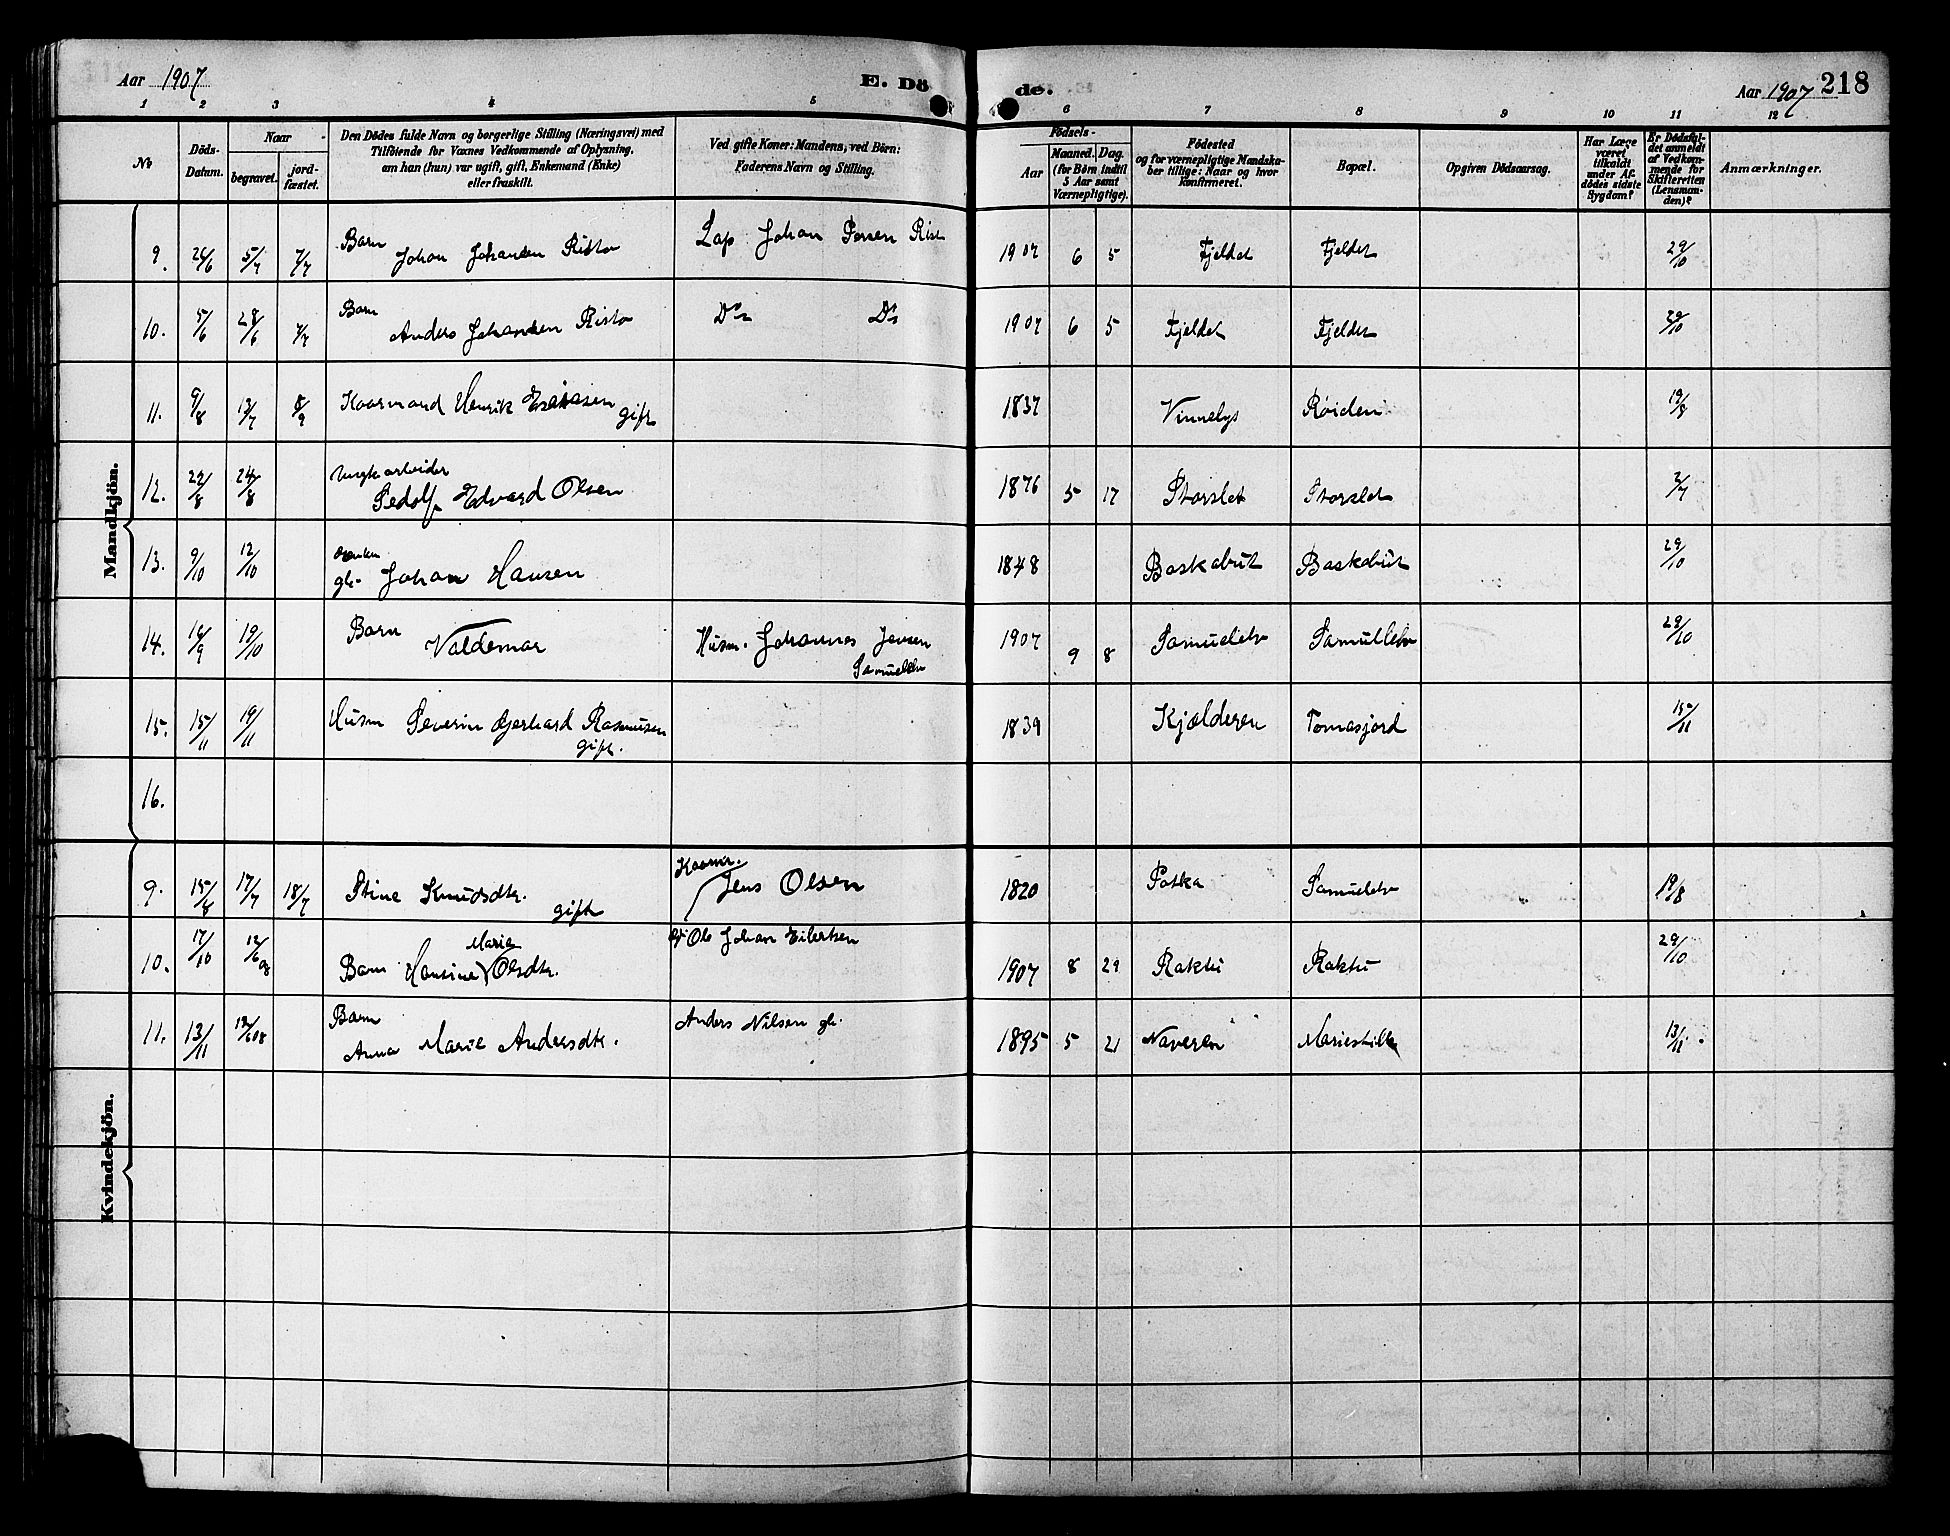 Aar 1907
E. Döde.
Aar 1907 218
1 2 3 4 5 6 7 8 9 10 11 12
No
Döds-Datum.
Naar
begravet.
jord-fæstet.
Den Dödes fulde Navn og borgerlige Stilling (Næringsvei) med
Tilföiende for Voxnes Vedkommende af Oplysning,
om han (hun) var ugift, gift, Enkemand (Enke)
eller fraskilt.
Ved gifte Koner: Mandens, ved Börn:
Faderens Navn og Stilling.
Födsels-
Aar
Maaned. Dag.
(for Börn indtil
5 Aar samt
Værnepligtige).
Födested
og for værnepligtige Mandska-
ber tillige: Naar og hvor
konfirmeret.
Bopæl.
Opgiven Dödsaarsag.
Har Læge
været
tilkaldt
under Af-
dödes sidste
Sygdom?
Er Dödsfal-
det anmeldt
af Vedkom-
mende for
Skifteretten
(Lensman-
den)?
Anmærkninger.
Mandkjön.
9. 26/6 5/7 7/7 Barn Johan Johansen Risto Lap Johan Persen Rist 1907 6 5 Fjeldet Fjeldet 29/10
10. 5/6 28/6 7/7 Barn Anders Johansen Risto Do Do 1907 6 5 Fjeldet Fjeldet 29/10
11. 9/8 13/7 8/9 Kaarmand Henrik Esaiasen gift 1837 Vinnelys Røiden 19/8
12. 22/8 24/8 Ungk arbeider Pedolf Edvard Olsen 1876 5 17 Storslet Storslet 2/7
13. 9/10 12/10 gb. Johan Hansen 1848 Baskabut Baskabut 29/10
14. 16/9 19/10 Barn Valdemar Husm. Johannes Jensen Samuelelv 1907 9 8 Samuelelv Samuelelv 29/10
15. 15/11 19/11 Husm Severin Gjerhard Rasmusen gift. 1839 Kjælderen Tomasjord 15/11
16.
Kvindekjön.
9. 15/8 17/7 18/7 Stine Knudsdtr. gift Kaarm. Jens Olsen 1820 Potka Samuelelv 19/8
10. 17/10 12/6 08 Barn Hansine Marie Olsdtr. Ole Johan Eilertsen 1907 8 29 Raktu Raktu 29/10
11. 13/11 12/6 08 Barn Anna Marie Andersdtr. Anders Nilsen gb. 1895 5 21 Naveren Mariestilla 13/11